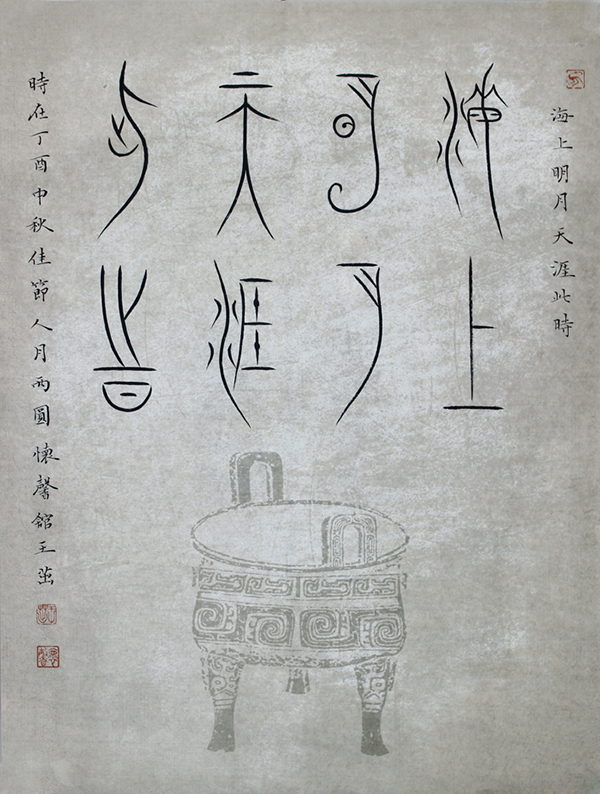 海上明月天涯此時
海上
明月
天涯
此時
時在丁酉中秋佳節人月兩圓懷馨館王